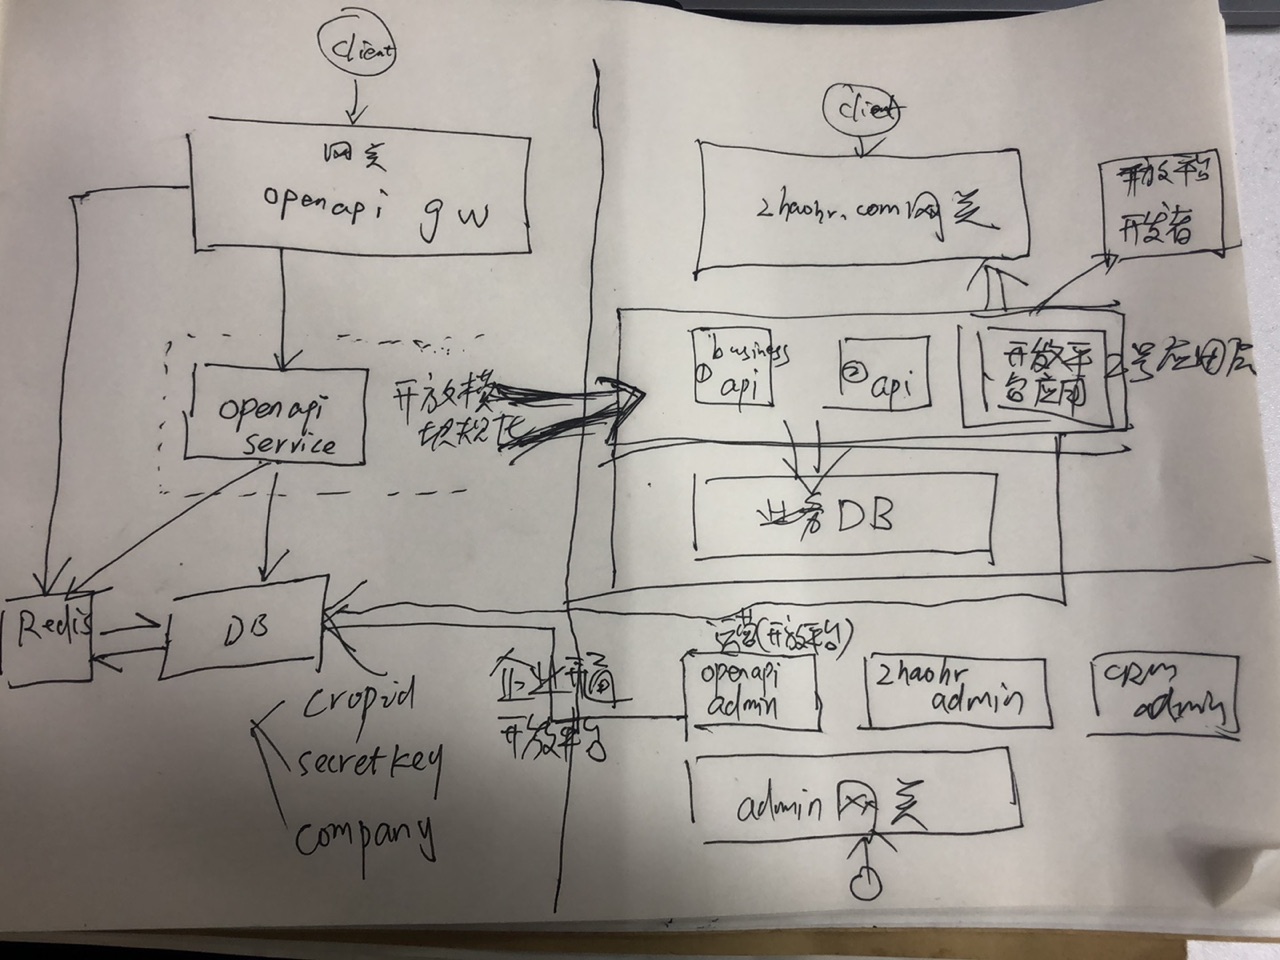 client
网关
openapi gw
openapi
service
开放模
Redis
DB
cropid
secretkey
company
client
2haohr.com网关
开放平台
开发者
business
① api
② api
开放平
台应用
2号应用层
业务DB
运营(开放平台)
openapi
admin
2haohr
admin
CRM
admin
企业开通
开放平台
admin网关